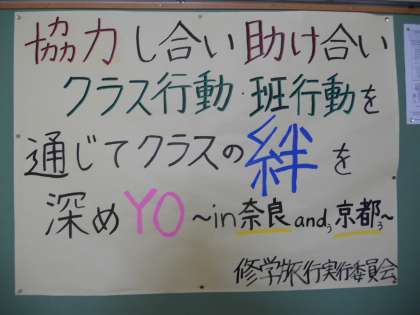 協力し合い助け合い
クラス行動・班行動を
通じてクラスの絆を
深めYO~in奈良and,京都~
修学旅行実行委員会